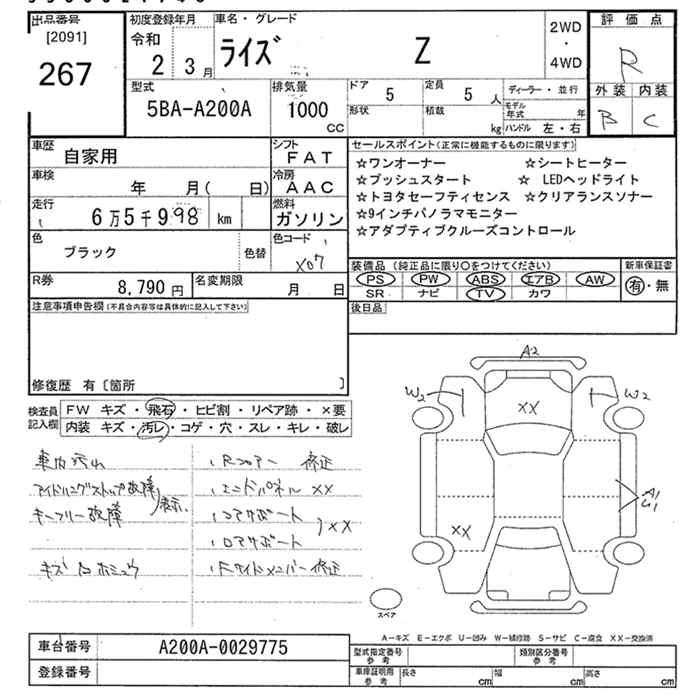 出品番号
[2091]
267
初度登録年月
令和
2 3月
車名・グレード
ライズ Z
2WD
・
4WD
評価点
R
外装 内装
B C
型式
5BA-A200A
排気量
1000
CC
ドア
5
定員
5 人
形状
積載
kg
ディーラー・並行
モデル
年式 年
ハンドル 左・右
車歴
自家用
シフト
FAT
車検
年 月( 日)
冷房
AAC
走行
6万5千998 km
燃料
ガソリン
色
ブラック
色替
色コード
X07
R券
8,790 円
名変期限
月 日
セールスポイント(正常に機能するものに限ります)
☆ワンオーナー ☆シートヒーター
☆プッシュスタート ☆ LEDヘッドライト
☆トヨタセーフティセンス ☆クリアランスソナー
☆9インチパノラマモニター
☆アダプティブクルーズコントロール
装備品(純正品に限り○をつけてください)
新車保証書
PS PW ABS エアB AW
有・無
SR ナビ TV カワ
後日品
注意事項申告欄(不具合内容等は具体的に記入して下さい)
修復歴 有〔箇所 〕
検査員
記入欄
FW キズ・飛石・ヒビ割・リペア跡・×要
内装 キズ・汚レ・コゲ・穴・スレ・キレ・破レ
車内汚れ
アイドリングストップ故障
表示、
キーフリー故障
キズ凹ホミュウ
Rコアー 修正
エンドパネル XX
コアサポート
XX
ロアサポート
Fサイドメンバー 修正
A2
W2
W2
XX
A1
U1
XX
スペア
A-キズ E-エクボ U-凹み W-補修跡 S-サビ C-腐食 XX-交換済
車台番号
A200A-0029775
登録番号
型式指定番号
参考
類別区分番号
参考
車庫証明用
参考
長さ cm
幅 cm
高さ cm